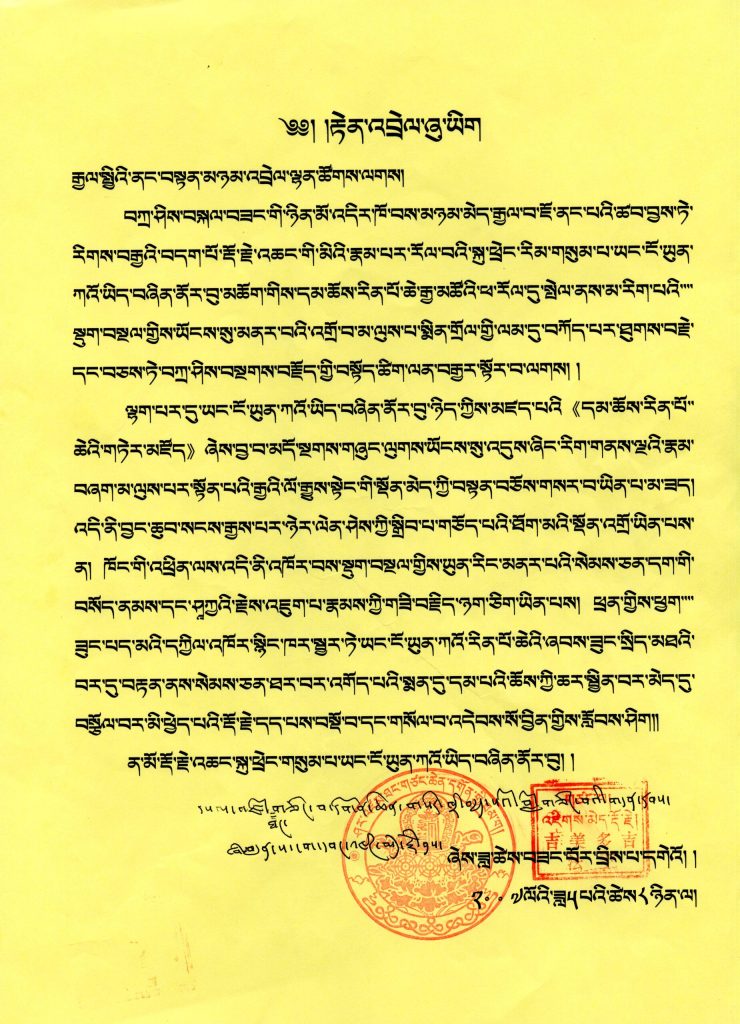 ༄༅། །རྟེན་འབྲེལ་ཞུ་ཡིག
རྒྱལ་སྤྱིའི་ནང་བསྟན་མཉམ་འབྲེལ་ལྷན་ཚོགས་ལགས།
བཀྲ་ཤིས་བསྐལ་བཟང་གི་ཉིན་མོ་འདིར་ཁོ་བས་མཉམ་མེད་རྒྱལ་བ་ཇོ་ནང་པའི་ཚབ་བྱས་ཏེ་
རིགས་བརྒྱའི་བདག་པོ་རྡོ་རྗེ་འཆང་གི་མིའི་རྣམ་པར་རོལ་བའི་སྐུ་ཕྲེང་རིམ་གསུམ་པ་ཡང་ངོ་ཡུན་
ཀའོ་ཡིད་བཞིན་ནོར་བུ་མཆོག་གིས་དམ་ཆོས་རིན་པོ་ཆེ་རྒྱ་མཚོའི་ཕ་རོལ་དུ་སྤེལ་ནས་མ་རིག་པའི""
སྡུག་བསྔལ་གྱིས་ཡོངས་སུ་མནར་བའི་འགྲོ་བ་མ་ལུས་པ་སྨིན་གྲོལ་གྱི་ལམ་དུ་བཀོད་པར་ཐུགས་བརྩེ་
དང་བཅས་ཏེ་བཀྲ་ཤིས་བསྔགས་བརྗོད་ཀྱི་བསྟོད་ཚིག་ལན་བརྒྱར་སྟོར་བ་ལགས། །
ལྷག་པར་དུ་ཡང་ངོ་ཡུན་ཀའོ་ཡིད་བཞིན་ནོར་བུ་ཉིད་ཀྱིས་མཛད་པའི 《དམ་ཆོས་རིན་པོ"
ཆེའི་གཏེར་མཛོད》 ཞེས་བྱ་བ་མདོ་སྔགས་གཞུང་ལུགས་ཡོངས་སུ་འདུས་ཞིང་རིག་གནས་ལྔའི་རྣམ་
བཞག་མ་ལུས་པར་སྟོན་པའི་རྒྱའི་ལོ་རྒྱུས་སྟེང་གི་སྔོན་མེད་ཀྱི་བསྟན་བཅོས་གསར་བ་ཡིན་པ་མ་ཟད།
འདི་ནི་བྱང་ཆུབ་སངས་རྒྱས་པར་ཉེར་ལེན་ཤེས་ཀྱི་སྒྲིབ་པ་གཅོད་པའི་ཐོག་མའི་སྔོན་འགྲོ་ཡིན་པས་
ན། ཁོང་གི་འཕྲིན་ལས་འདི་ནི་འཁོར་བས་སྡུག་བསྔལ་གྱིས་ཡུན་རིང་མནར་པའི་སེམས་ཅན་དག་གི་
བསོད་ནམས་དང་ཤཱཀྱའི་རྗེས་འཇུག་པ་རྣམས་ཀྱི་གཟི་བརྗིད་ཉག་ཅིག་ཡིན་པས། ཕྲན་གྱིས་ཕྱག""
ཟུང་པད་མའི་དཀྱིལ་འཁོར་སྙིང་ཁར་སྦྱར་ཏེ་ཡང་ངོ་ཡུན་ཀའོ་རིན་པོ་ཆེའི་ཞབས་ཟུང་སྲིད་མཐའི་
བར་དུ་བརྟན་ནས་སེམས་ཅན་ཐར་བར་འགོད་པའི་སྨན་དུ་དམ་པའི་ཆོས་ཀྱི་ཆར་སྦྱིན་བར་མེད་དུ་
བསྩོལ་བར་མི་ཕྱེད་པའི་རྡོ་རྗེ་དད་པས་བསྔོ་བ་དང་གསོལ་བ་འདེབས་སོ་བྱིན་གྱིས་རློབས་ཤིག།
ན་མོ་རྡོ་རྗེ་འཆང་སྐུ་ཕྲེང་གསུམ་པ་ཡང་ངོ་ཡུན་ཀའོ་ཡིད་བཞིན་ནོར་བུ། །
འཇིགས་མེད་རྡོ་རྗེ།
吉美多吉
ཞེས་ཟླ་ཚེས་བཟང་པོར་བྲིས་པ་དགེའོ། །
༢༠༠༧ལོའི་ཟླ༥པའི་ཚེས༨ཉིན་ལ།